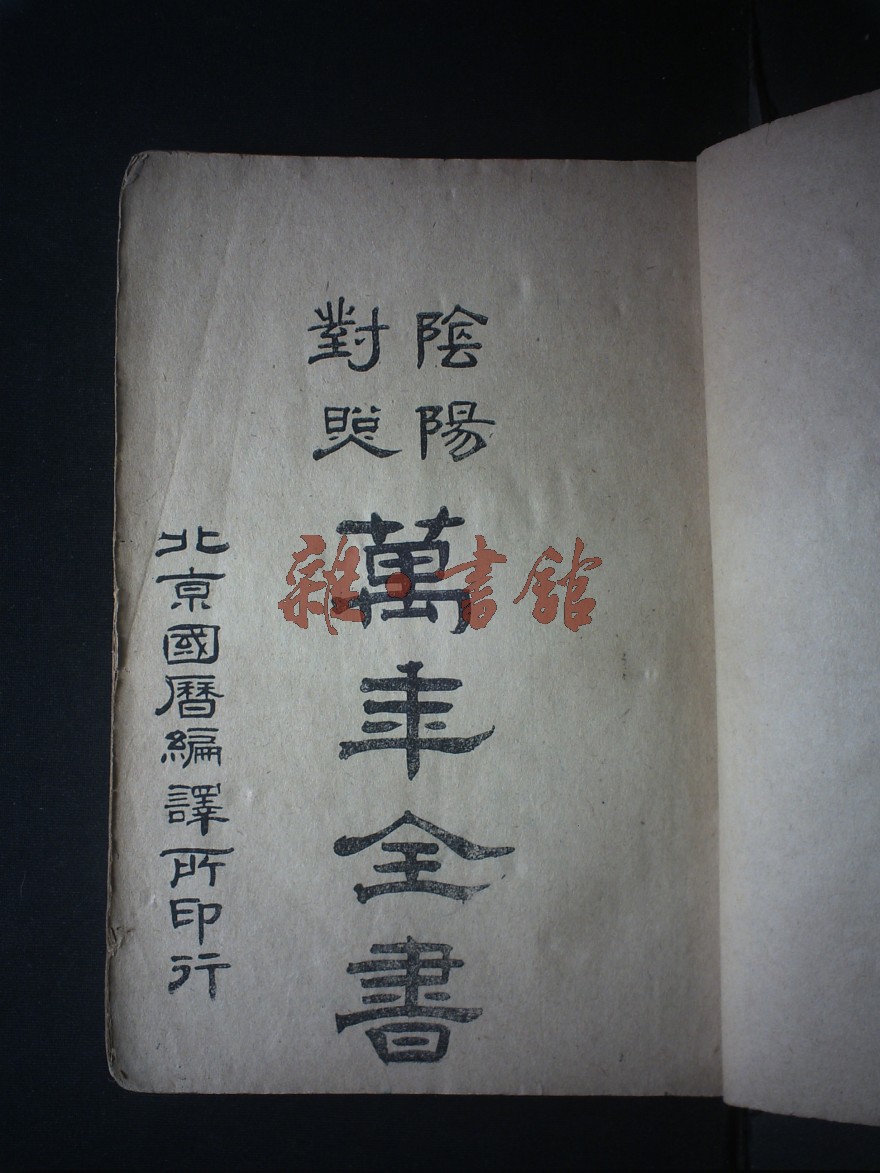 陰陽
對照
萬年全書
北京國曆編譯所印行
雜·書館